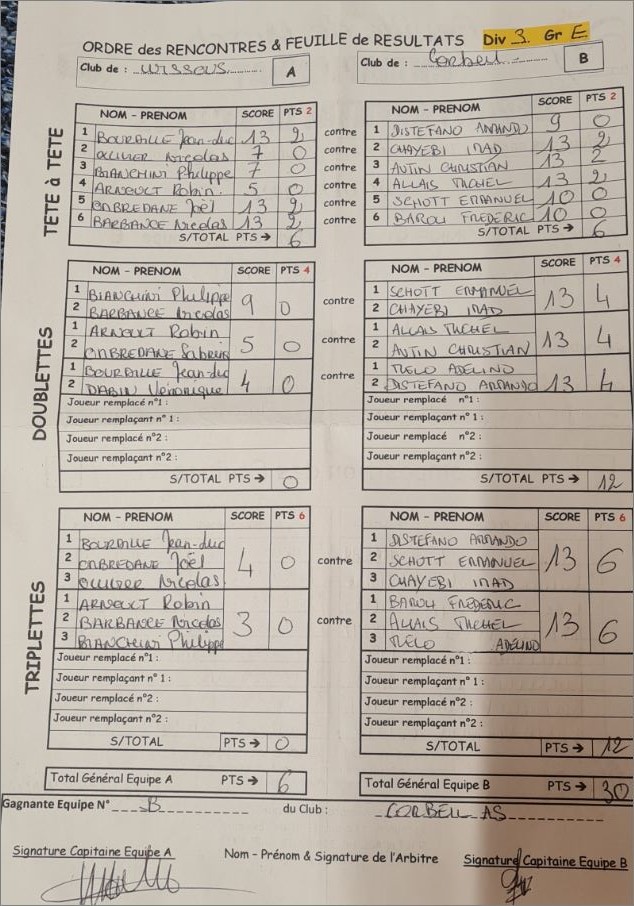 ORDRE des RENCONTRES & FEUILLE de RESULTATS Div 3 Gr E
Club de : WISSOUS A Club de : Corbeil B
TETE à TETE
NOM - PRENOM SCORE PTS 2 NOM - PRENOM SCORE PTS 2
1 BOURAILLE Jean-duc 13 2 contre 1 DISTEFANO ARMANDO 9 0
2 OLLIVIER Nicolas 7 0 contre 2 CHAYEBI IMAD 13 2
3 BIANCHINI Philippe 7 0 contre 3 AUTIN CHRISTIAN 13 2
4 ARNOULT Robin 5 0 contre 4 ALLAIS MICHEL 13 2
5 ONBREDANE Joël 13 2 contre 5 SCHOTT EMMANUEL 10 0
6 BARBANCE Nicolas 13 2 contre 6 BAROU FREDERIC 10 0
S/TOTAL PTS → 6 S/TOTAL PTS → 6
DOUBLETTES
NOM - PRENOM SCORE PTS 4 NOM - PRENOM SCORE PTS 4
1 BIANCHINI Philippe 1 SCHOTT EMMANUEL
2 BARBANCE Nicolas 9 0 contre 2 CHAYEBI IMAD 13 4
1 ARNOULT Robin 1 ALLAIS MICHEL
2 ONBREDANE Sabrina 5 0 contre 2 AUTIN CHRISTIAN 13 4
1 BOURAILLE Jean-duc 1 MELO ADELINO
2 DABIN Véronique 4 0 contre 2 DISTEFANO ARMANDO 13 4
Joueur remplacé n°1 : Joueur remplacé n°1 :
Joueur remplaçant n° 1 : Joueur remplaçant n° 1 :
Joueur remplacé n°2 : Joueur remplacé n°2 :
Joueur remplaçant n°2 : Joueur remplaçant n°2 :
S/TOTAL PTS → 0 S/TOTAL PTS → 12
TRIPLETTES
NOM - PRENOM SCORE PTS 6 NOM - PRENOM SCORE PTS 6
1 BOURAILLE Jean-duc 1 DISTEFANO ARMANDO
2 ONBREDANE Joël 4 0 contre 2 SCHOTT EMMANUEL 13 6
3 OLLIVIER Nicolas 3 CHAYEBI IMAD
1 ARNOULT Robin 1 BAROU FREDERIC
2 BARBANCE Nicolas 3 0 contre 2 ALLAIS MICHEL 13 6
3 BIANCHINI Philippe 3 MELO ADELINO
Joueur remplacé n°1 : Joueur remplacé n°1 :
Joueur remplaçant n° 1 : Joueur remplaçant n° 1 :
Joueur remplacé n°2 : Joueur remplacé n°2 :
Joueur remplaçant n°2 : Joueur remplaçant n°2 :
S/TOTAL PTS → 0 S/TOTAL PTS → 12
Total Général Equipe A PTS → 6 Total Général Equipe B PTS → 30
Gagnante Equipe N° B du Club : CORBEIL AS
Signature Capitaine Equipe A Nom - Prénom & Signature de l'Arbitre Signature Capitaine Equipe B